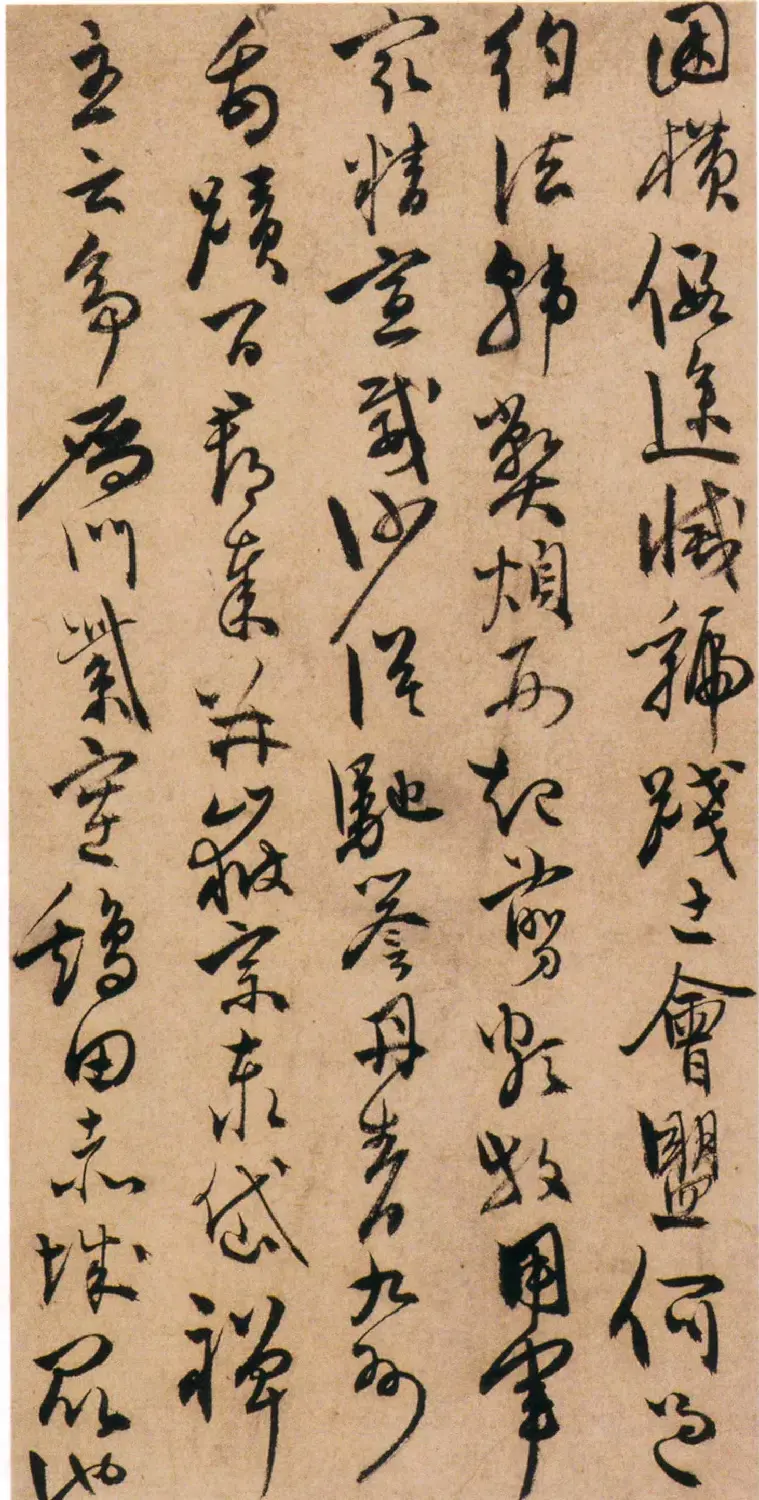 困橫假途滅虢踐土會盟何遵
約法韓弊煩刑起翦頗牧用軍
最精宣威沙漠馳譽丹青九州
禹蹟百郡秦并嶽宗泰岱禪
主云亭雁門紫塞鷄田赤城昆池